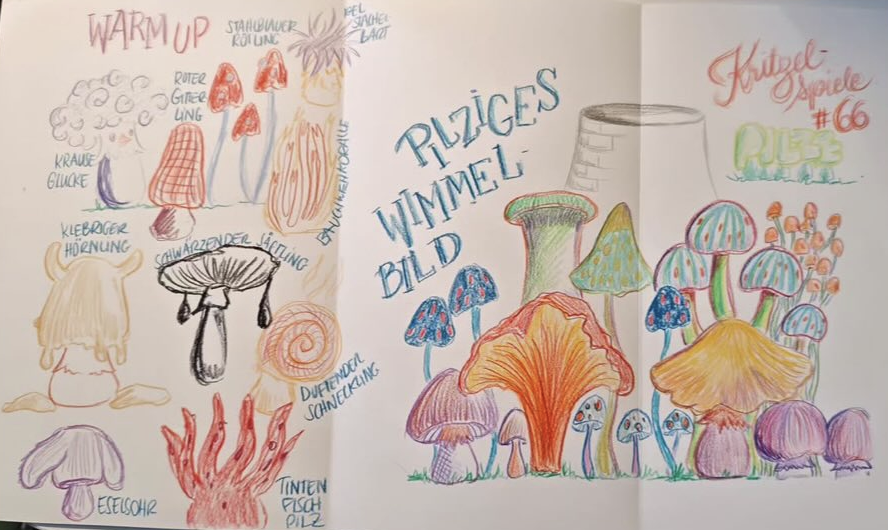 WARM UP
STAHLBLAUER
RÖTLING
IGEL
STACHEL
BART
ROTER
GITTER
LING
KRAUSE
GLUCKE
BAUCHWEHKORALLE
KLEBRIGER
HÖRNLING
SCHWÄRZENDER SAFTLING
DUFTENDER
SCHNECKLING
ESELSOHR
TINTEN
FISCH
PILZ
PILZIGES
WIMMEL-
BILD
Kritzel-
spiele
#66
PILZE